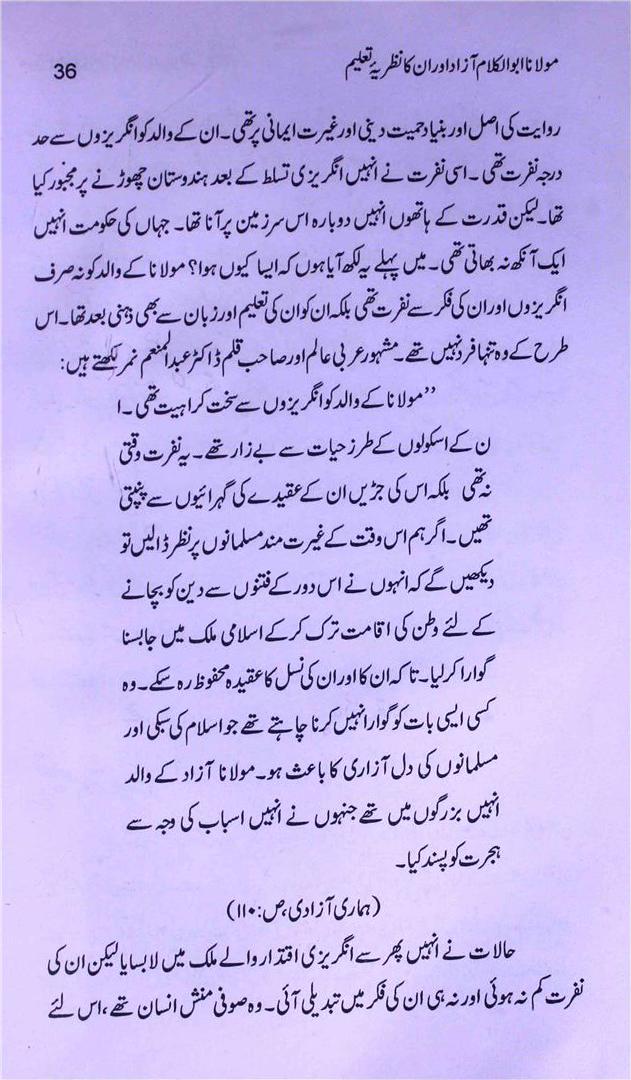 مولانا ابوالکلام آزاد اور ان کا نظریۂ تعلیم
36
روایت کی اصل اور بنیاد حمیت دینی اور غیرت ایمانی پر تھی۔ ان کے والد کو انگریزوں سے حد
درجہ نفرت تھی۔ اسی نفرت نے انہیں انگریزی تسلط کے بعد ہندوستان چھوڑنے پر مجبور کیا
تھا۔ لیکن قدرت کے ہاتھوں انہیں دوبارہ اس سرزمین پر آنا تھا۔ جہاں کی حکومت انہیں
ایک آنکھ نہ بھاتی تھی۔ میں پہلے یہ لکھ آیا ہوں کہ ایسا کیوں ہوا؟ مولانا کے والد کو نہ صرف
انگریزوں اور ان کی فکر سے نفرت تھی بلکہ ان کو ان کی تعلیم اور زبان سے بھی ذہنی بعد تھا۔ اس
طرح کے وہ تنہا فرد نہیں تھے۔ مشہور عربی عالم اور صاحب قلم ڈاکٹر عبدالمنعم نمر لکھتے ہیں:
’’مولانا کے والد کو انگریزوں سے سخت کراہیت تھی۔ ا
ن کے اسکولوں کے طرز حیات سے بے زار تھے۔ یہ نفرت وقتی
نہ تھی بلکہ اس کی جڑیں ان کے عقیدے کی گہرائیوں سے پنپتی
تھیں۔ اگر ہم اس وقت کے غیرت مند مسلمانوں پر نظر ڈالیں تو
دیکھیں گے کہ انہوں نے اس دور کے فتنوں سے دین کو بچانے
کے لئے وطن کی اقامت ترک کر کے اسلامی ملک میں جا بسنا
گوارا کر لیا۔ تا کہ ان کا اور ان کی نسل کا عقیدہ محفوظ رہ سکے۔ وہ
کسی ایسی بات کو گوارا نہیں کرنا چاہتے تھے جو اسلام کی سبکی اور
مسلمانوں کی دل آزاری کا باعث ہو۔ مولانا آزاد کے والد
انہیں بزرگوں میں تھے جنہوں نے انہیں اسباب کی وجہ سے
ہجرت کو پسند کیا۔
(ہماری آزادی، ص: ۱۱۰)
حالات نے انہیں پھر سے انگریزی اقتدار والے ملک میں لا بسایا لیکن ان کی
نفرت کم نہ ہوئی اور نہ ہی ان کی فکر میں تبدیلی آئی۔ وہ صوفی منش انسان تھے، اس لئے